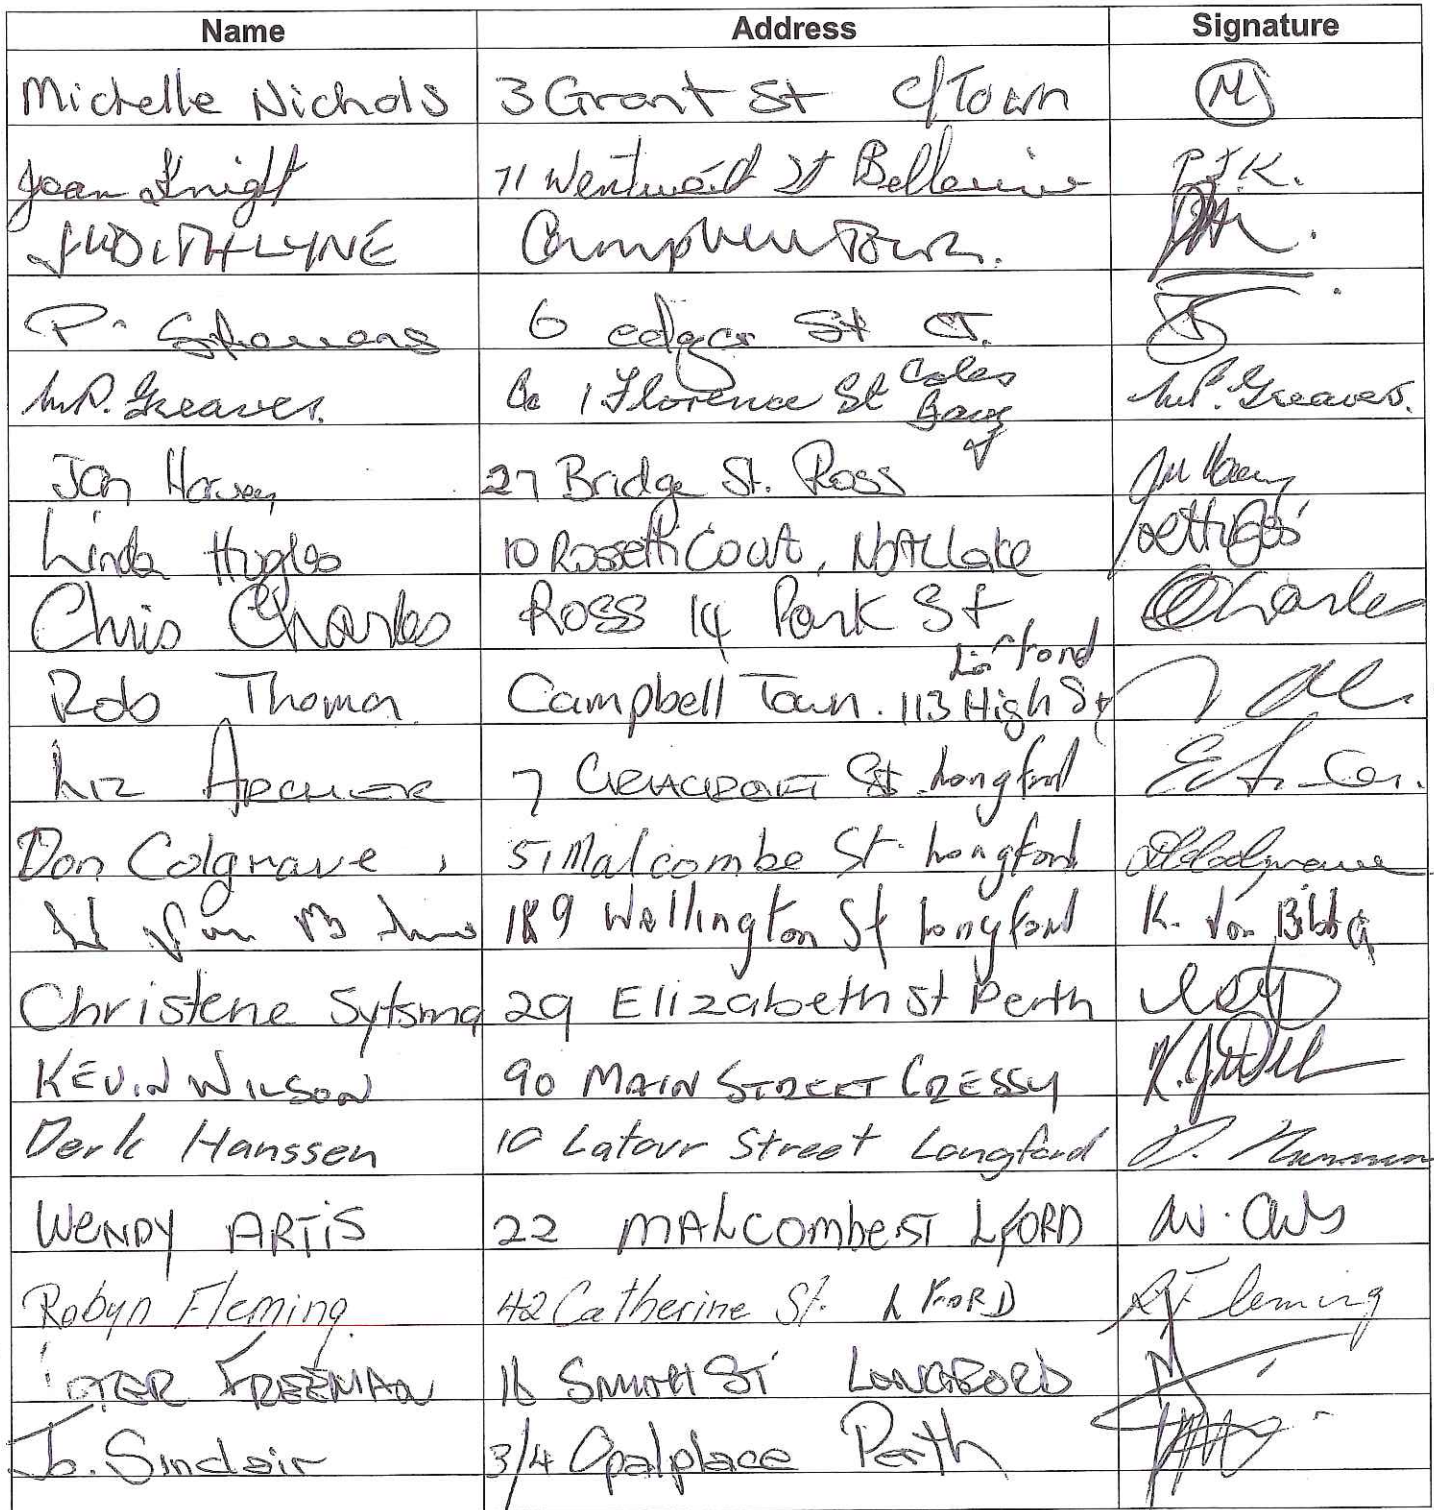 Name Address Signature
Michelle Nichols 3 Grant St C/Town M
Joan Knight 71 Wentworth St Bellerive P.J.K.
JUDITH LYNE Campbell Town.
P. 6 edgar St CT.
M.P. Greaves. 1 Florence St Coles Bay M.P. Greaves.
Jan Harvey 27 Bridge St. Ross
Linda Hughes 10 Rosetti Court,
Chris Charles Ross 14 Park St Charles
Rob Thomas Campbell Town. 113 High St
Liz ARCHER 7 St. Longford
Don Colgrave 51 Malcombe St. Longford
189 Wellington St Longford K. Von Bibra
Christene Sytsma 29 Elizabeth St Perth
KEVIN WILSON 90 MAIN STREET CRESSY
Derk Hanssen 10 Latour Street Longford D.
WENDY ARTIS 22 MALCombe ST LFORD W.
Robyn Fleming 42 Catherine St. LFORD R Fleming
FREEMAN 16 SMITH ST LONGFORD
Jo. Sinclair 3/4 Opal place Perth